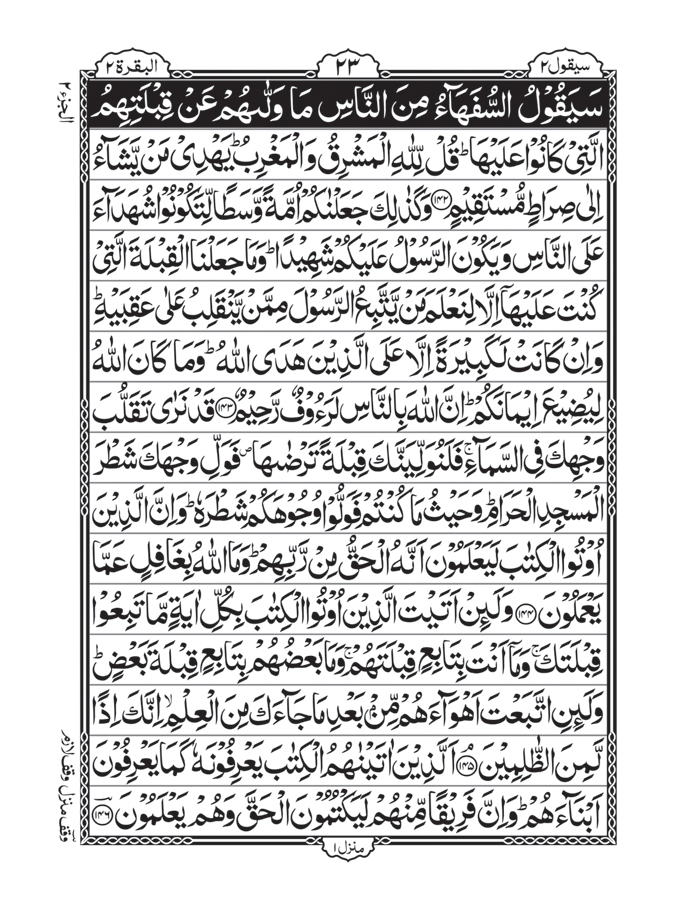 سيقول ٢ ٢٣ البقرة ٢
الجزء ٢
سَيَقُوْلُ السُّفَهَآءُ مِنَ النَّاسِ مَا وَلّٰىهُمْ عَنْ قِبْلَتِهِمُ
الَّتِیْ كَانُوْا عَلَیْهَا ؕ قُلْ لِّلّٰهِ الْمَشْرِقُ وَالْمَغْرِبُ ؕ یَهْدِیْ مَنْ یَّشَآءُ
اِلٰی صِرَاطٍ مُّسْتَقِیْمٍ ﴿۱۴۲﴾ وَكَذٰلِكَ جَعَلْنٰكُمْ اُمَّةً وَّسَطًا لِّتَكُوْنُوْا شُهَدَآءَ
عَلَی النَّاسِ وَیَكُوْنَ الرَّسُوْلُ عَلَیْكُمْ شَهِیْدًا ؕ وَمَا جَعَلْنَا الْقِبْلَةَ الَّتِیْ
كُنْتَ عَلَیْهَاۤ اِلَّا لِنَعْلَمَ مَنْ یَّتَّبِعُ الرَّسُوْلَ مِمَّنْ یَّنْقَلِبُ عَلٰی عَقِبَیْهِ ؕ
وَاِنْ كَانَتْ لَكَبِیْرَةً اِلَّا عَلَی الَّذِیْنَ هَدَی اللّٰهُ ؕ وَمَا كَانَ اللّٰهُ
لِیُضِیْعَ اِیْمَانَكُمْ ؕ اِنَّ اللّٰهَ بِالنَّاسِ لَرَءُوْفٌ رَّحِیْمٌ ﴿۱۴۳﴾ قَدْ نَرٰی تَقَلُّبَ
وَجْهِكَ فِی السَّمَآءِ ۚ فَلَنُوَلِّیَنَّكَ قِبْلَةً تَرْضٰىهَا ۪ فَوَلِّ وَجْهَكَ شَطْرَ
الْمَسْجِدِ الْحَرَامِ ؕ وَحَیْثُ مَا كُنْتُمْ فَوَلُّوْا وُجُوْهَكُمْ شَطْرَهٗ ؕ وَاِنَّ الَّذِیْنَ
اُوْتُوا الْكِتٰبَ لَیَعْلَمُوْنَ اَنَّهُ الْحَقُّ مِنْ رَّبِّهِمْ ؕ وَمَا اللّٰهُ بِغَافِلٍ عَمَّا
یَعْمَلُوْنَ ﴿۱۴۴﴾ وَلَىِٕنْ اَتَیْتَ الَّذِیْنَ اُوْتُوا الْكِتٰبَ بِكُلِّ اٰیَةٍ مَّا تَبِعُوْا
قِبْلَتَكَ ۚ وَمَاۤ اَنْتَ بِتَابِعٍ قِبْلَتَهُمْ ۚ وَمَا بَعْضُهُمْ بِتَابِعٍ قِبْلَةَ بَعْضٍ ؕ
وَلَىِٕنِ اتَّبَعْتَ اَهْوَآءَهُمْ مِّنْۢ بَعْدِ مَا جَآءَكَ مِنَ الْعِلْمِ ۙ اِنَّكَ اِذًا
لَّمِنَ الظّٰلِمِیْنَ ﴿۱۴۵﴾ اَلَّذِیْنَ اٰتَیْنٰهُمُ الْكِتٰبَ یَعْرِفُوْنَهٗ كَمَا یَعْرِفُوْنَ
اَبْنَآءَهُمْ ؕ وَاِنَّ فَرِیْقًا مِّنْهُمْ لَیَكْتُمُوْنَ الْحَقَّ وَهُمْ یَعْلَمُوْنَ ﴿۱۴۶﴾
وقف منزل وقف لازم
منزل ۱